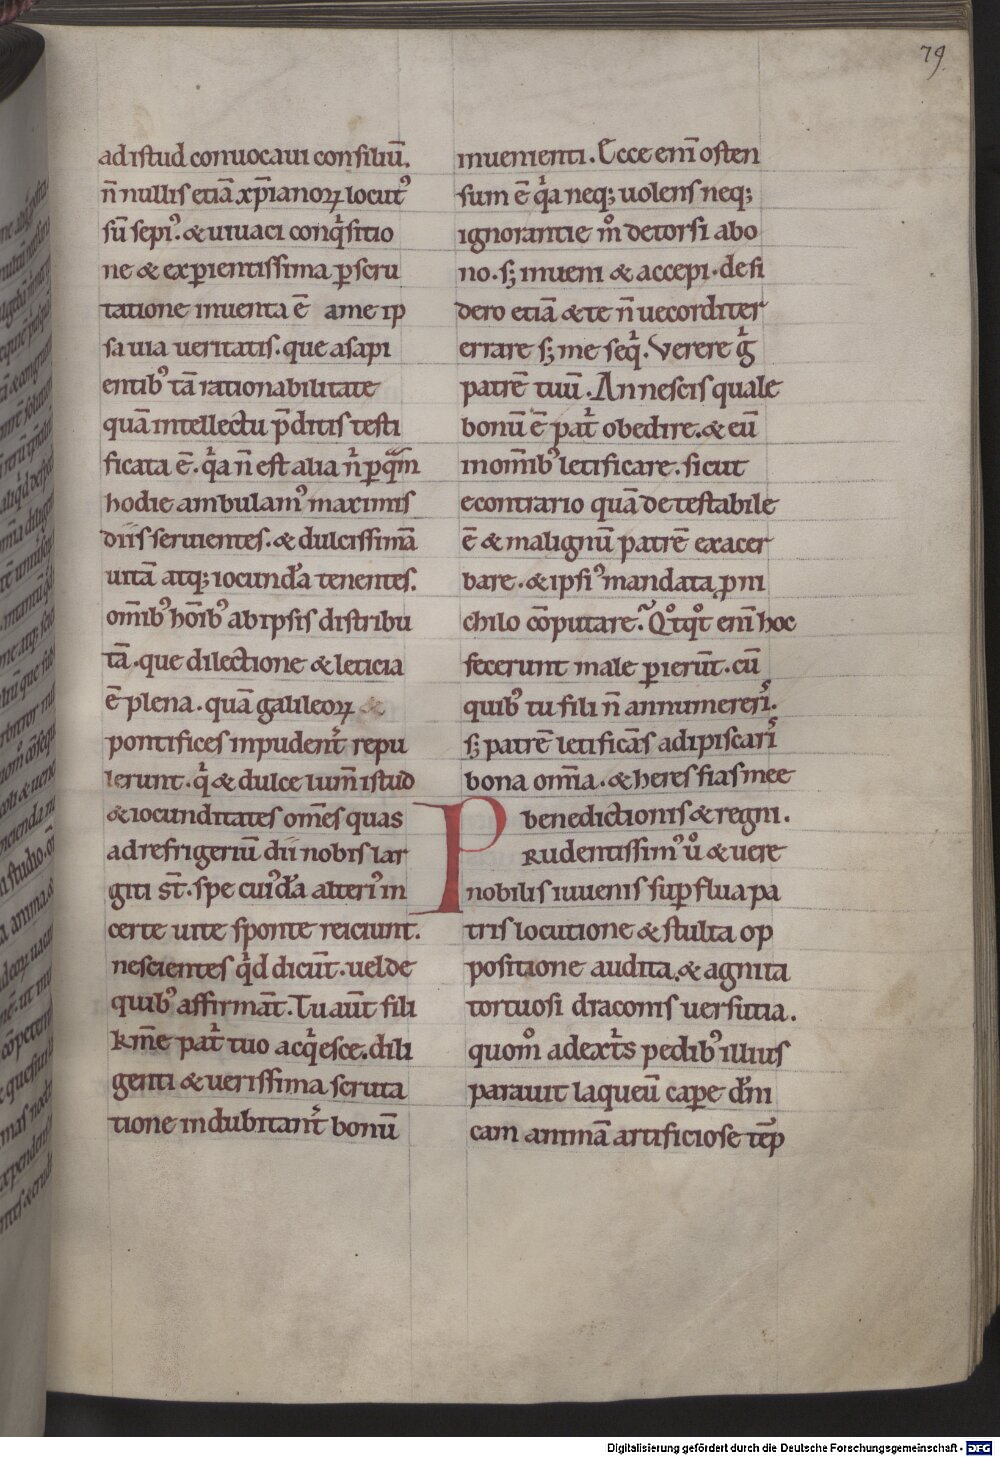 79.
ad istud conuocaui consiliū.
n̄ nullis etiā xp̄ianoꝝ locut᾽
sū sepi᾽. & uiuaci conq̇sitio
ne & exꝑientissima ꝑscru
tatione inuenta ē ame ip
sa uia ueritatis. que a sapi
entib᾽ tā rationabilitate
quā intellectu p̄ditis testi
ficata ē. q̇a n̄ est alia n̄ ꝑ quā
hodie ambulam᾽ maximis
diis seruientes. & dulcissimā
uitā atq; iocundā tenentes.
om̄ib᾽ hōib᾽ ab ipsis distribu
tā. que dilectione & leticia
ē plena. quā galileoꝝ
pontifices inpudent᾽ repu
lerunt. q̇ & dulce lum̄ istud
& iocunditates om̄es quas
ad refrigeriū dii nobis lar
giti st̄. spe cui᾽dā alteri᾽ in
certe uite sponte reiciunt.
nescientes q̇d dicūt. uel de
quib᾽ affirmāt. Tu aūt fili
km̄e pat᾽ tuo acq̇esce. dili
genti & uerissima scruta
tione indubitant᾽ bonū
inuenienti. Ecce eni᷄ osten
sum ē q̇a neq; uolens neq;
ignorantie mͦ detorsi abo
no. s; inueni & accepi. desi
dero etiā & te n̄ uecorditer
errare s; me seq̇. Verere g̊
patrē tuū. An nescis quale
bonū ē pat᾽ obedire. & eū
in om̄ib᾽ letificare. sicut
econtrario quā detestabile
ē & malignū patrē exacer
bare. & ipsi᾽ mandata ꝓ ni
chilo cōputare. Qͦtqͦt eni᷄ hoc
fecerunt male ꝑierūt. cū
quib᾽ tu fili n̄ annumereris.
s; patrē letificās adipiscaris
bona om̄ia. & heres fias mee
benedictionis & regni.
PRudentissim᾽ uͦ & uere
nobilis iuuenis suꝑflua pa
tris locutione & stulta op
positione audita. & agnita
tortuosi draconis uersutia.
quomͦ a dext᾽s pedib᾽ illius
parauit laqueū caꝑe dīni
cam animā artificiose tēp
Digitalisierung gefördert durch die Deutsche Forschungsgemeinschaft - DFG